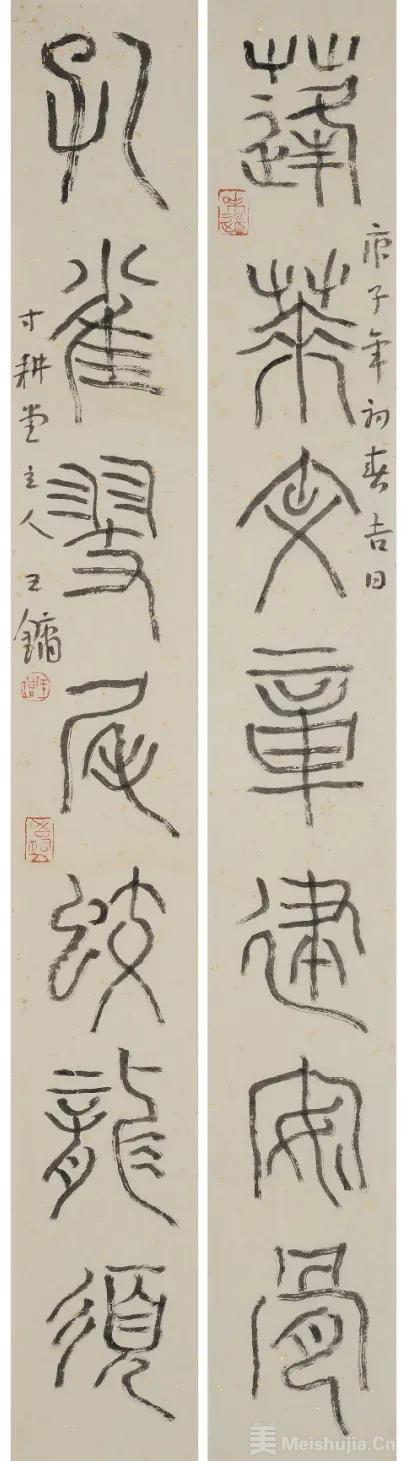 蓬莱文章建安骨
庚子年初春吉日
孔雀翠尾蛟龙须
寸耕堂主人王镛
美 Meishujia.Cn